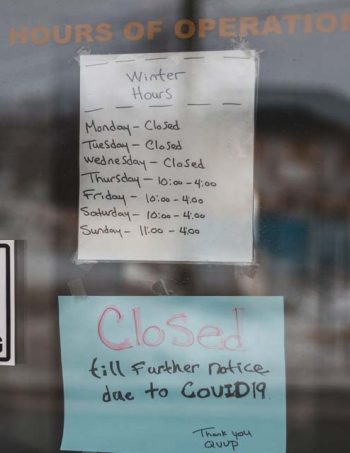 HOURS OF OPERATION
Winter
Hours
Monday - Closed
Tuesday - Closed
Wednesday - Closed
Thursday - 10:00 - 4:00
Friday - 10:00 - 4:00
Saturday - 10:00 - 4:00
Sunday - 11:00 - 4:00
Closed
till Further notice
due to COVID19.
Thank you